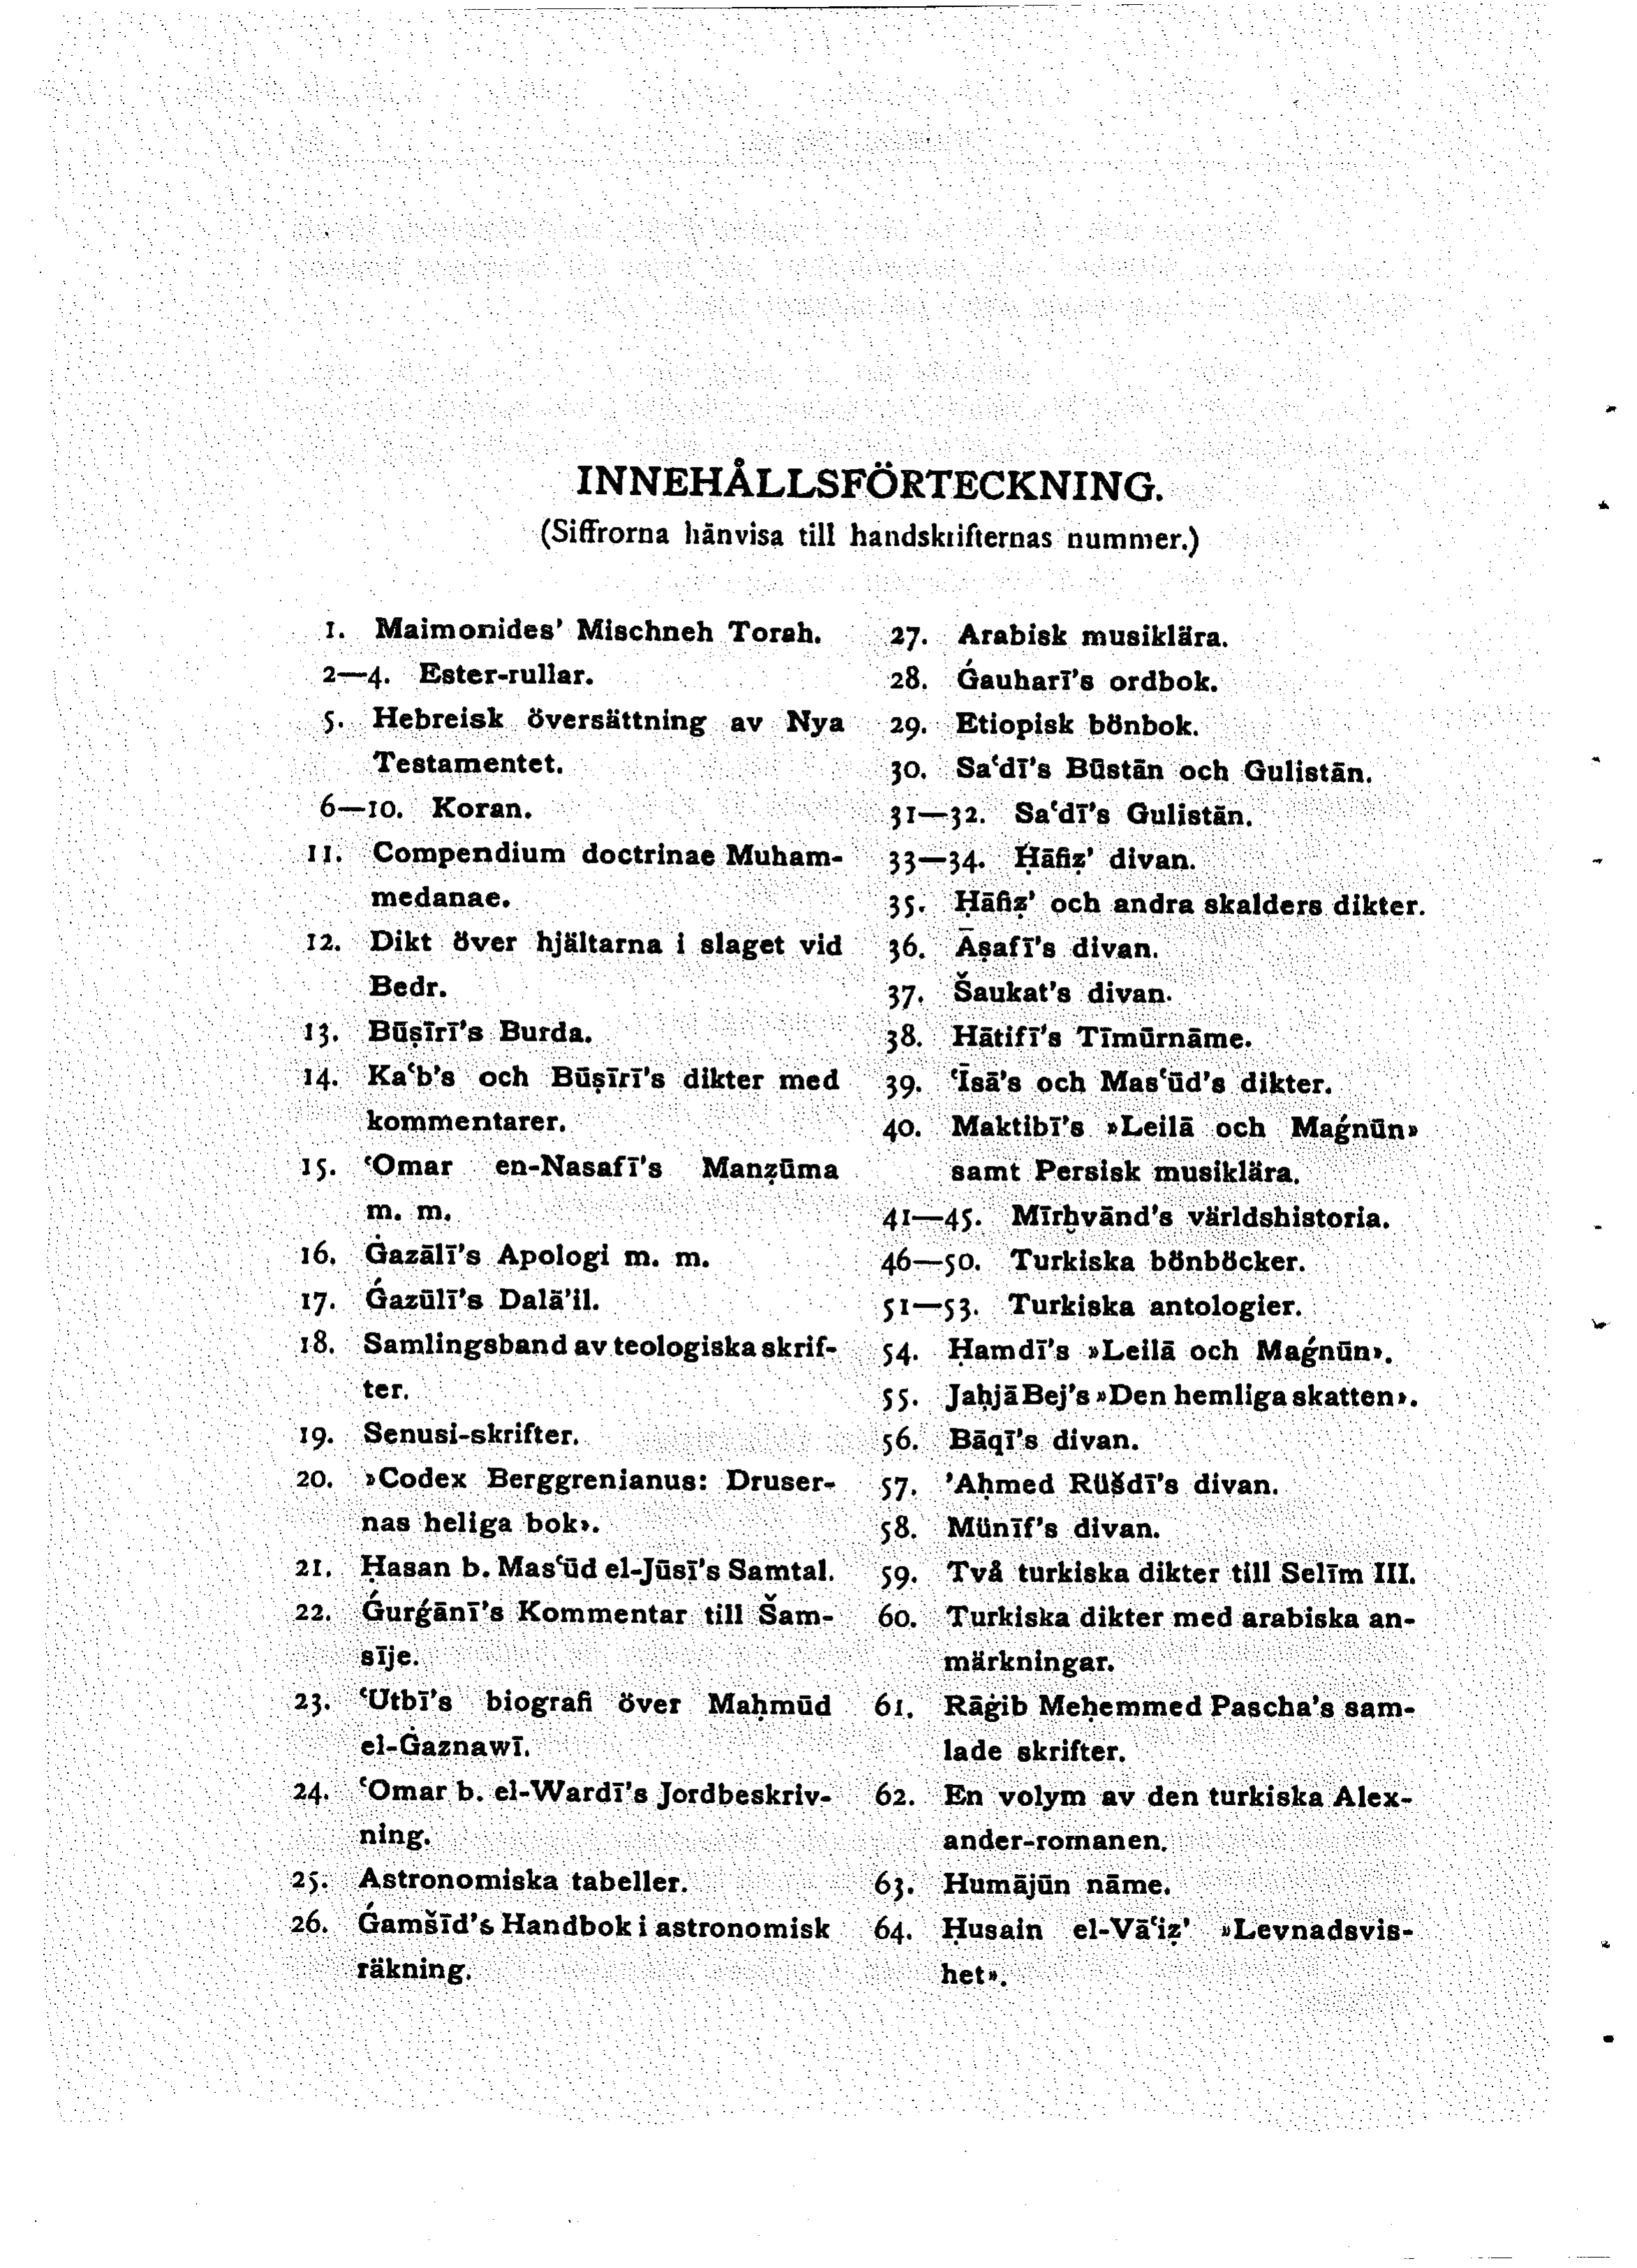 INNEHÅLLSFÖRTECKNING.
(Siffrorna hänvisa till handskrifternas nummer.)
1. Maimonides' Mischneh Torah.
2—4. Ester-rullar.
5. Hebreisk översättning av Nya
Testamentet.
6—10. Koran.
11. Compendium doctrinae Muham-
medanae.
12. Dikt över hjältarna i slaget vid
Bedr.
13. Būṣīrī's Burda.
14. Kaʿb's och Būṣīrī's dikter med
kommentarer.
15. ʿOmar en-Nasafī's Manẓūma
m. m.
16. Ġazālī's Apologi m. m.
17. Ǵazūlī's Dalā'il.
18. Samlingsband av teologiska skrif-
ter.
19. Senusi-skrifter.
20. »Codex Berggrenianus: Druser-
nas heliga bok».
21. Ḥasan b. Masʿūd el-Jūsī's Samtal.
22. Ǵurǵānī's Kommentar till Šam-
sīje.
23. ʿUtbī's biografi över Maḥmūd
el-Ġaznawī.
24. ʿOmar b. el-Wardī's Jordbeskriv-
ning.
25. Astronomiska tabeller.
26. Ǵamšīd's Handbok i astronomisk
räkning.
27. Arabisk musiklära.
28. Ǵauharī's ordbok.
29. Etiopisk bönbok.
30. Saʿdī's Būstān och Gulistān.
31—32. Saʿdī's Gulistān.
33—34. Ḥāfiẓ' divan.
35. Ḥāfiẓ' och andra skalders dikter.
36. Āṣafī's divan.
37. Šaukat's divan.
38. Hātifī's Tīmūrnāme.
39. ʿĪsā's och Masʿūd's dikter.
40. Maktibī's »Leilā och Maǵnūn»
samt Persisk musiklära.
41—45. Mīrḫvānd's världshistoria.
46—50. Turkiska bönböcker.
51—53. Turkiska antologier.
54. Ḥamdī's »Leilā och Maǵnūn».
55. Jaḥjā Bej's »Den hemliga skatten».
56. Bāqī's divan.
57. 'Aḥmed Rüšdī's divan.
58. Münīf's divan.
59. Två turkiska dikter till Selīm III.
60. Turkiska dikter med arabiska an-
märkningar.
61. Rāġib Meḥemmed Pascha's sam-
lade skrifter.
62. En volym av den turkiska Alex-
ander-romanen.
63. Humājūn nāme.
64. Ḥusain el-Vāʿiẓ' »Levnadsvis-
het».